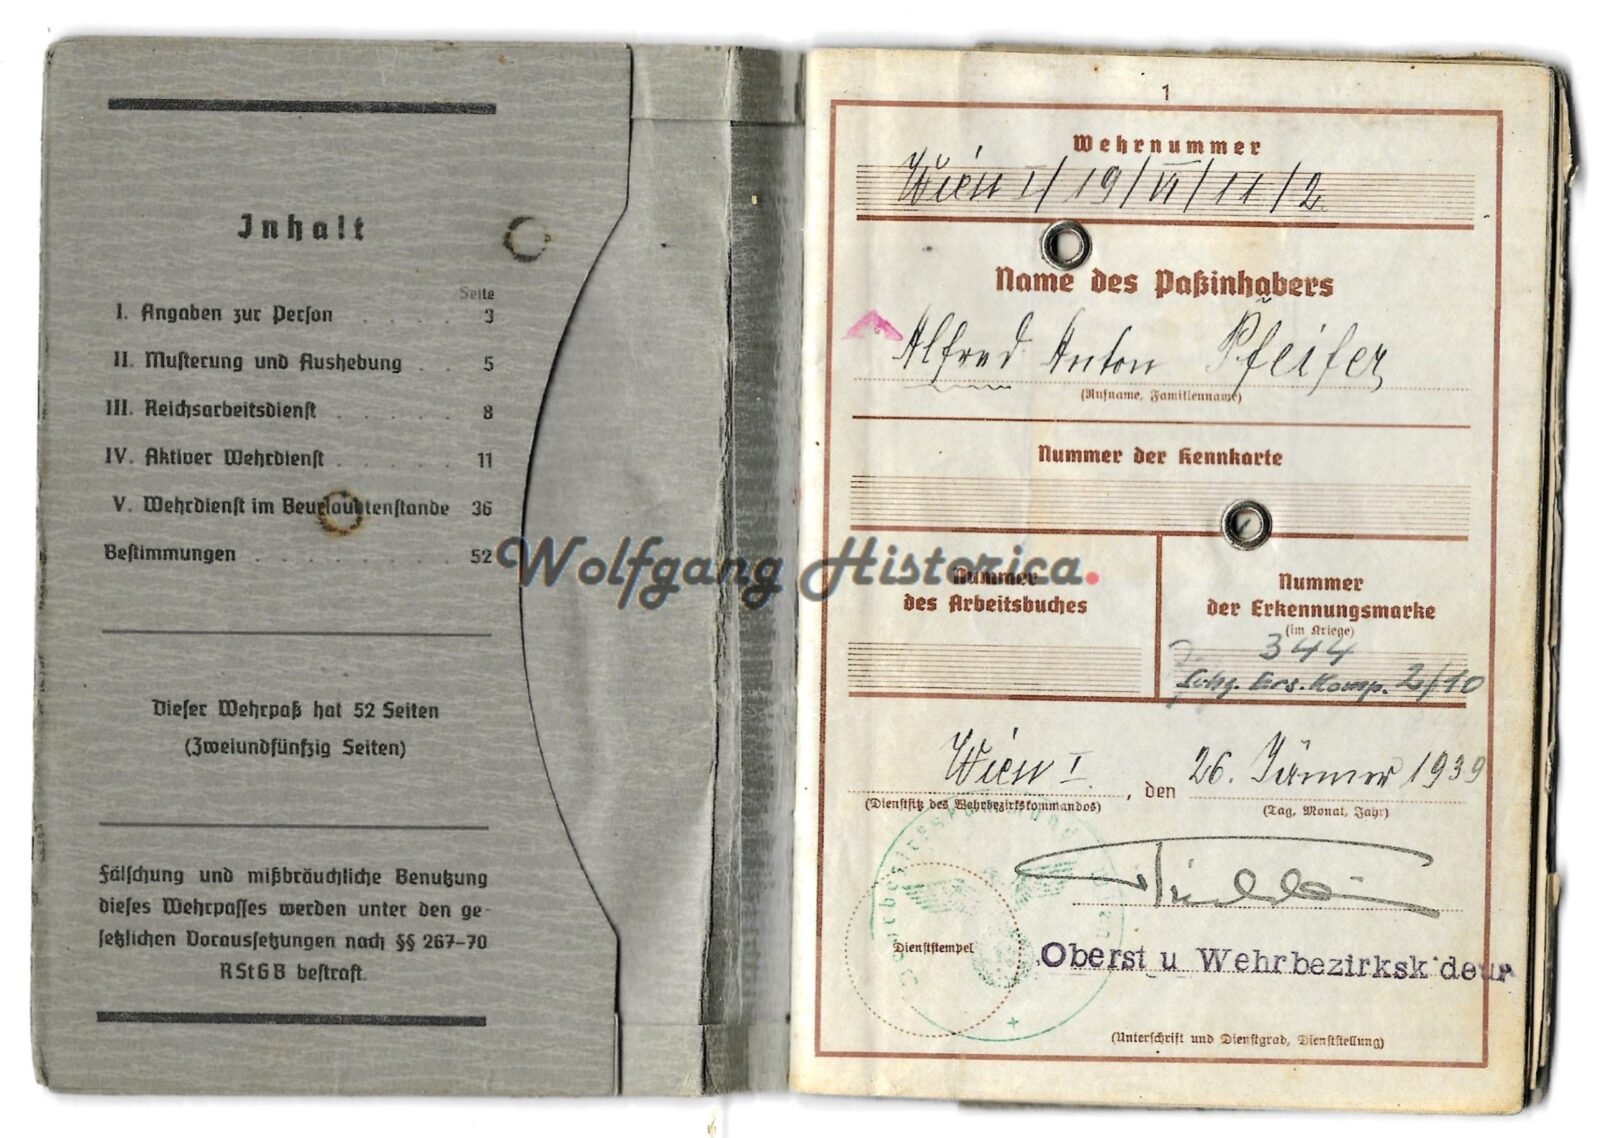 Inhalt
Seite
I. Angaben zur Person . . . . . 3
II. Musterung und Aushebung . . 5
III. Reichsarbeitsdienst . . . . . . 8
IV. Aktiver Wehrdienst . . . . . . 11
V. Wehrdienst im Beurlaubtenstande 36
Bestimmungen . . . . . . . . . 52
Dieser Wehrpaß hat 52 Seiten
(Zweiundfünfzig Seiten)
Fälschung und mißbräuchliche Benutzung
dieses Wehrpasses werden unter den ge-
setzlichen Voraussetzungen nach §§ 267-70
RStGB bestraft.
Wolfgang Historica.
1
Wehrnummer
Wien I/19/VI/11/2
Name des Paßinhabers
Alfred Anton Pfeifer
(Rufname, Familienname)
Nummer der Kennkarte
Nummer
des Arbeitsbuches
Nummer
der Erkennungsmarke
(im Kriege)
344
Ers. Komp. 2/10
Wien I, den 26. Jänner 1939
(Dienstsitz des Wehrbezirkskommandos)
(Tag, Monat, Jahr)
Dienststempel
Oberst u Wehrbezirksk'deur
(Unterschrift und Dienstgrad, Dienststellung)